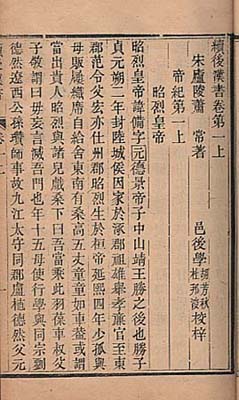 續後漢書卷第一上
宋廬陵蕭 常著 邑後學 校梓
帝紀第一上
昭烈皇帝
昭烈皇帝諱備字元德景帝子中山靖王勝之後也勝子
貞元朔二年封陸城侯因家於涿郡祖雄舉孝廉官至東
郡范令父宏亦仕州郡昭烈生於桓帝延熙四年少孤與
母販屨織席自給舍東南有桑高五丈童童如車蓋或謂
當出貴人昭烈與諸兒戲桑下曰吾當乘此羽葆車叔父
子敬謂曰毋妄言滅吾門也年十五母使行學與同宗劉
德然遼西公孫瓚師事故九江太守同郡盧植德然父元